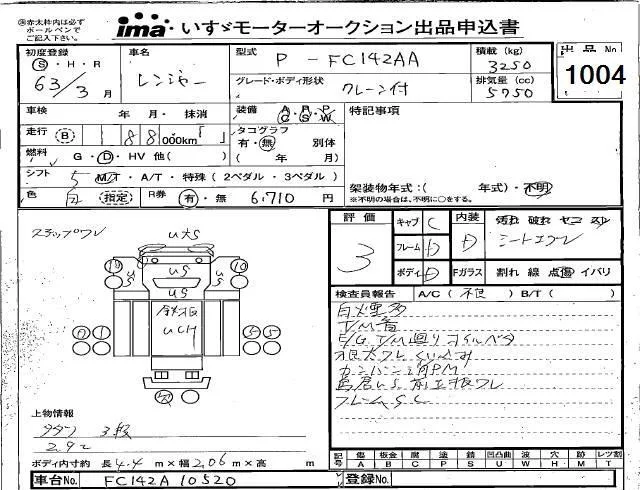 ※赤太枠内は必ず
ボールペンで
ご記入下さい。
ima いすゞモーターオークション出品申込書
初度登録 車名 型式 P - FC142AA 積載(kg) 3250
S・H・R 63/3 月 レンジャー
グレード・ボディ形状 クレーン付 排気量(cc) 5750
出品No 1004
車検 年 月・抹消 装備 A・R・P C・S・W 特記事項
走行 B 88 000km「 」 タコグラフ 有・無 別体
燃料 G・D・HV 他( ) ( 年 月)
シフト 5 M/T・A/T・特殊(2ペダル・3ペダル) 架装物年式:( 年式)・不明
※不明の場合は、不明に○をする。
色 白 指定 R券 有・無 6,710 円
評価 3
キャブ C 内装 D 汚れ 破れ ヤニ スレ
フレーム D シートコゲ
ボディ D Fガラス 割れ 線 点傷 イバリ
ステップワレ
U大S
US
US
US
US
鉄板
UCH
検査員報告 A/C(不良)B/T( )
白煙多
T/M音
E/G T/M廻りオイルベタ
フレームSC
上物情報
タダノ 3段
2.9t
ボディ内寸約 長 4.4 m×幅 2.06 m×高 m
記号 傷 板金 腐 塗 錆 凹凸曲 波 穴 跡 レンズ割
A B C P S U W H M T
車台No. FC142A 10520 登録No.